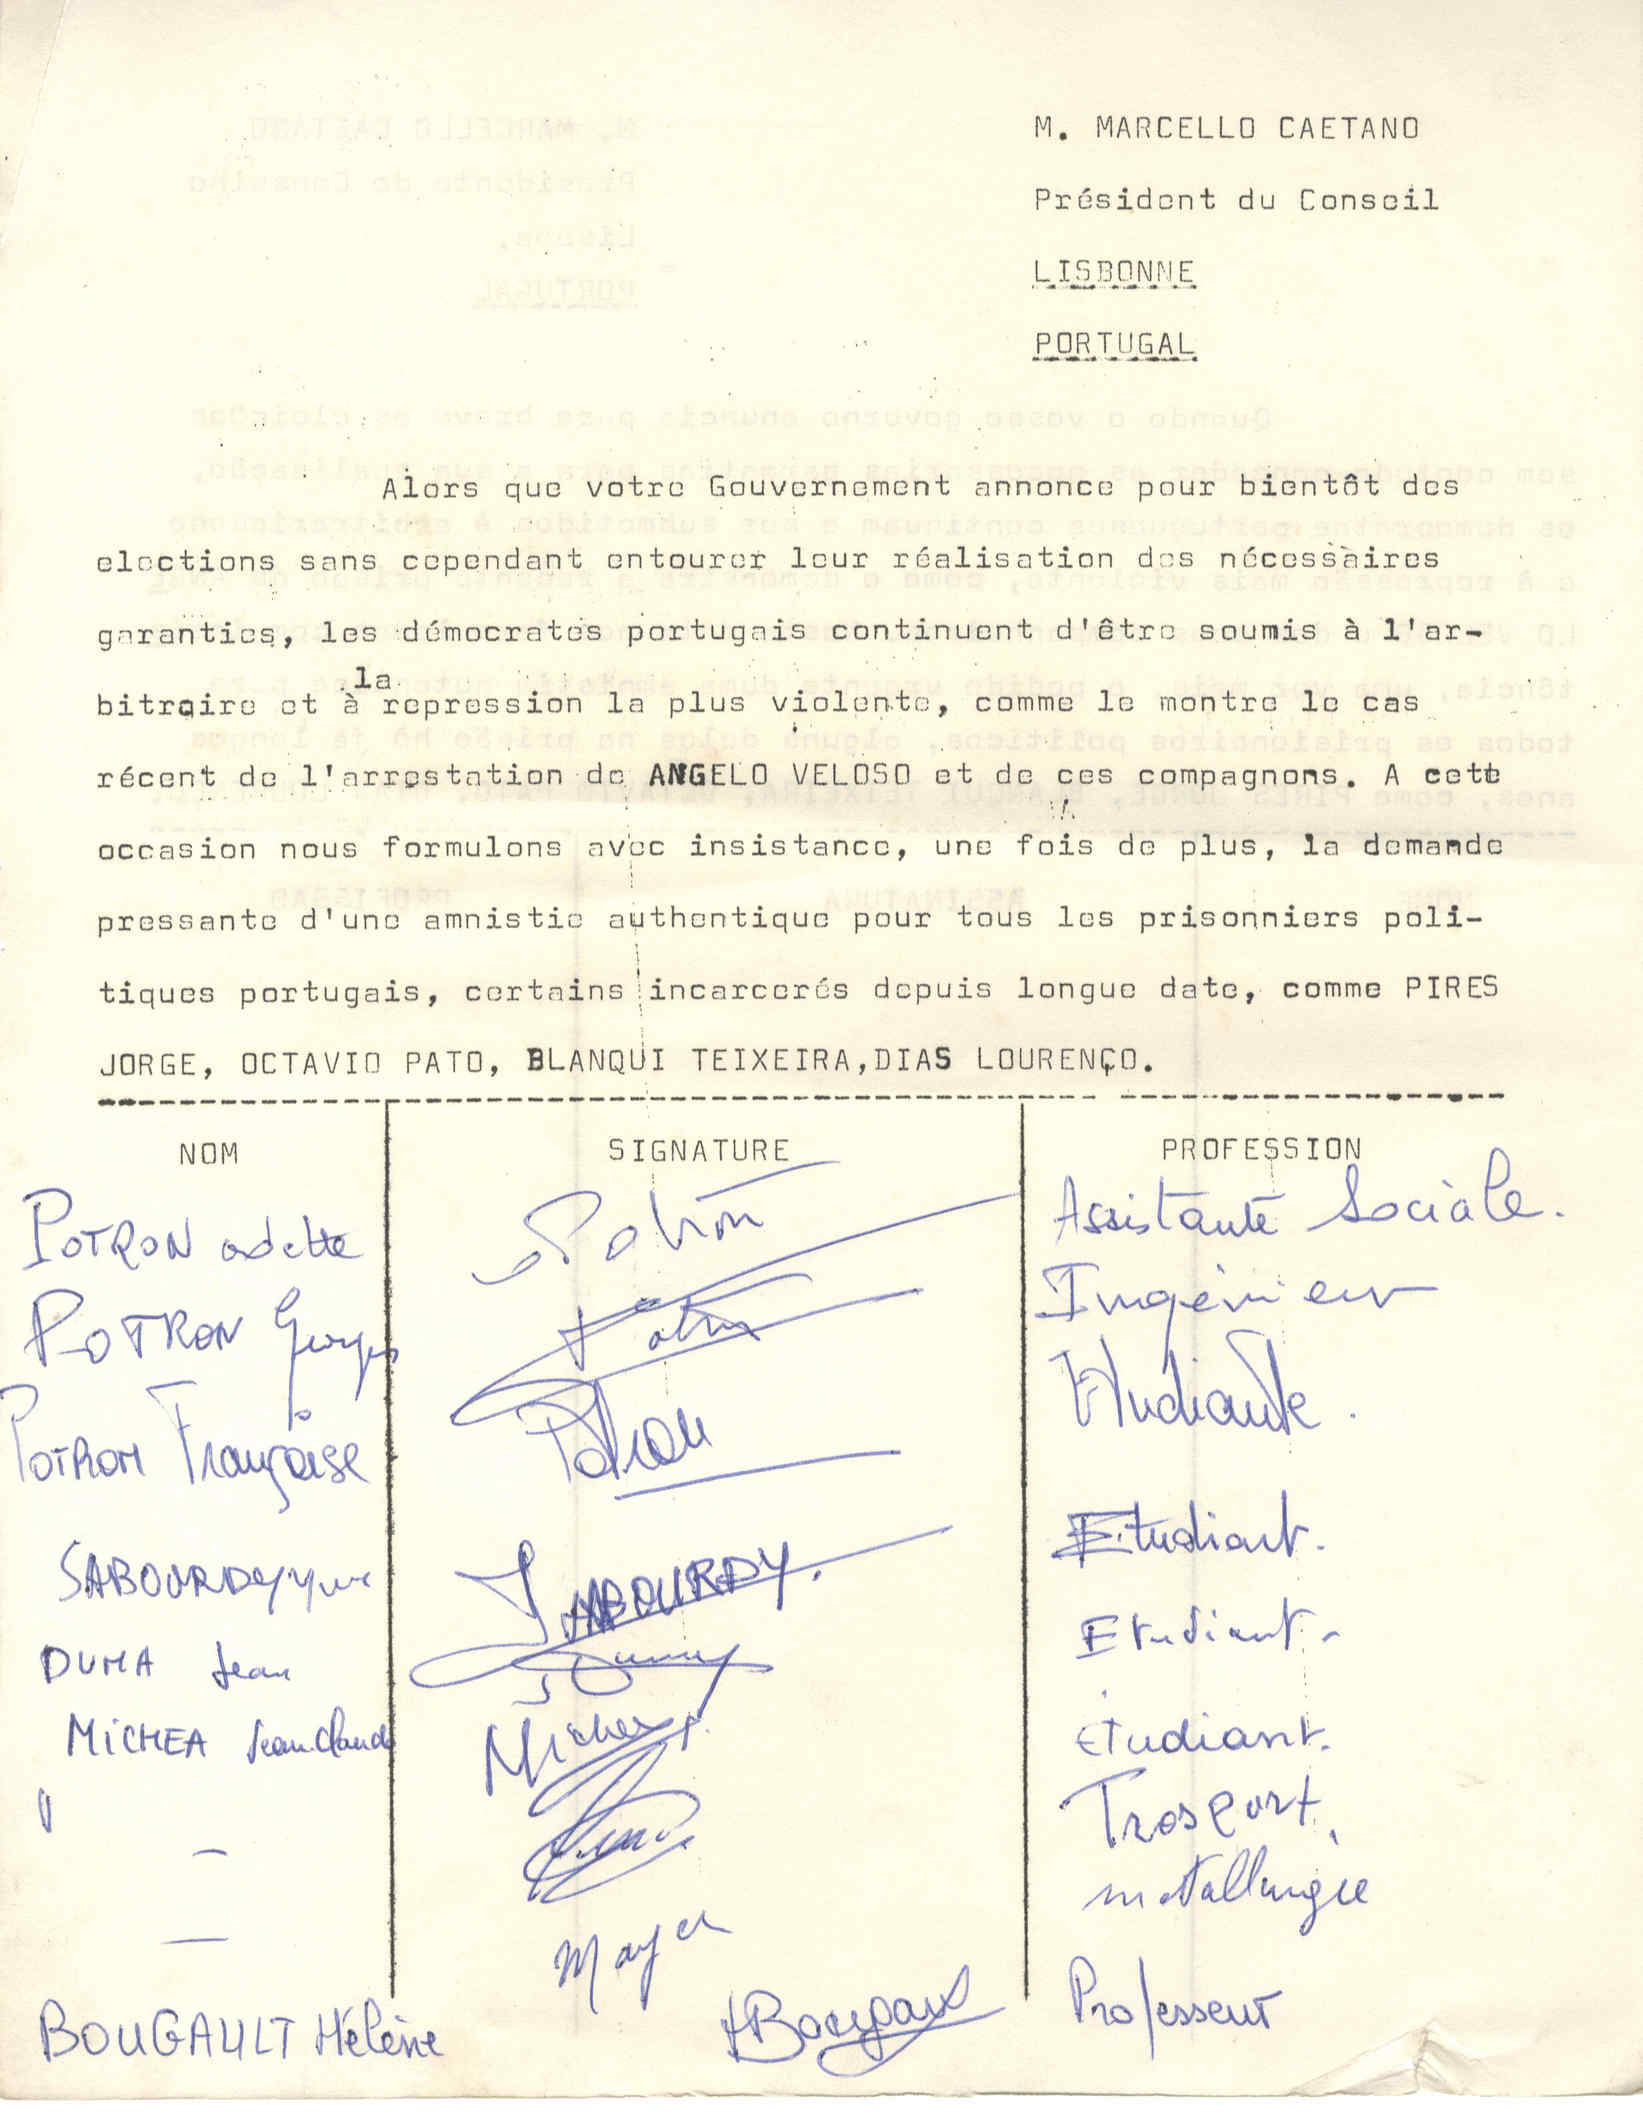 M. MARCELLO CAETANO
Président du Conseil
LISBONNE
PORTUGAL
Alors que votre Gouvernement annonce pour bientôt des
elections sans cependant entourer leur réalisation des nécessaires
garanties, les démocrates portugais continuent d'être soumis à l'ar-
bitraire et à la repression la plus violente, comme le montre le cas
récent de l'arrestation de ANGELO VELOSO et de ces compagnons. A cette
occasion nous formulons avec insistance, une fois de plus, la demande
pressante d'une amnistie authentique pour tous les prisonniers poli-
tiques portugais, certains incarcerés depuis longue date, comme PIRES
JORGE, OCTAVIO PATO, BLANQUI TEIXEIRA, DIAS LOURENÇO.
NOM SIGNATURE PROFESSION
POTRON odette Potron Assistante Sociale.
POTRON Georges Potron Ingénieur
POTRON Françoise Potron Etudiante.
SABOURDY Yves SABOURDY. Etudiant.
DUMA Jean Duma Etudiant.
MICHEA Jean Claude Michea Etudiant.
Trosport
metallurgie
Mayer
BOUGAULT Hélène HBougault Professeur